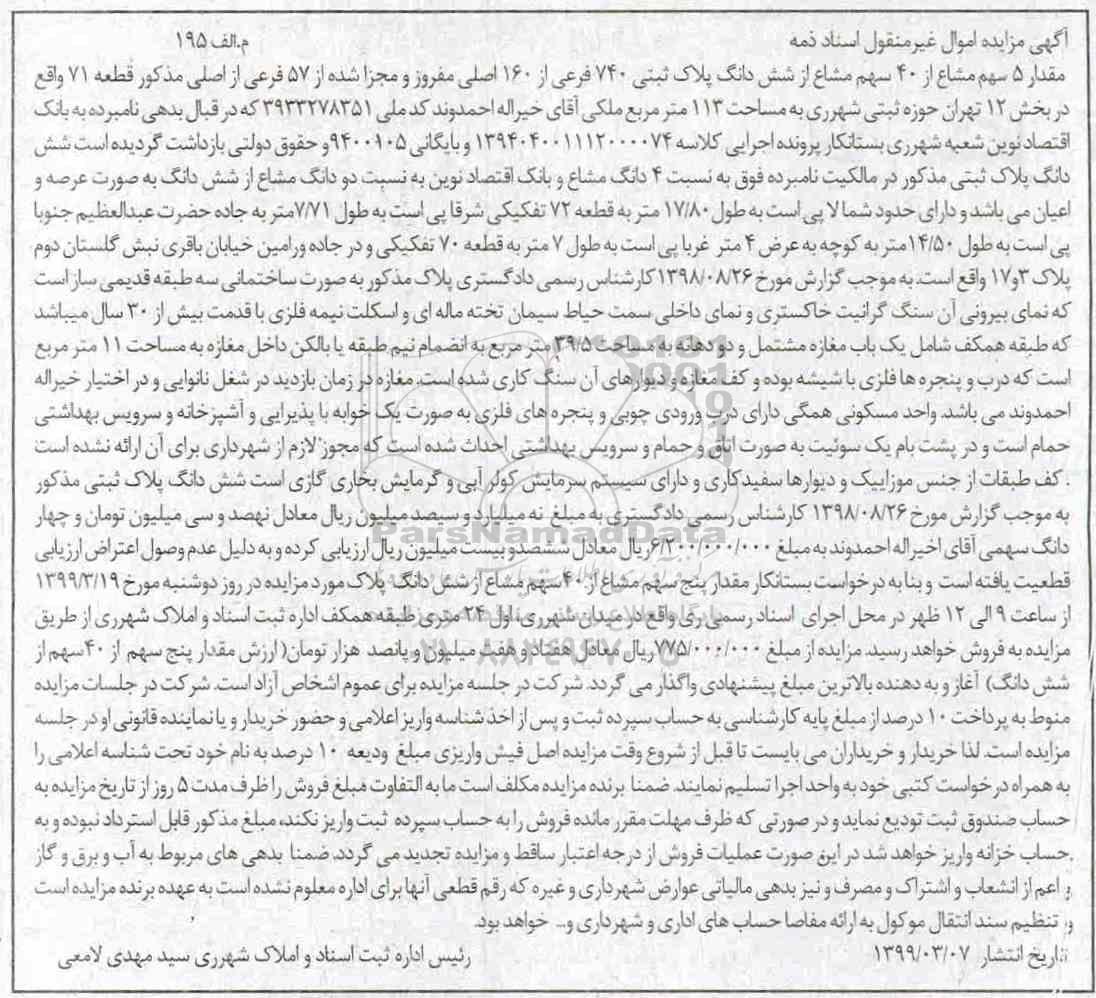 آگهی مزایده اموال غیرمنقول اسناد ذمه م.الف ۱۹۵
مقدار ۵ سهم مشاع از ۴۰ سهم مشاع از شش دانگ پلاک ثبتی ۷۴۰ فرعی از ۱۶۰ اصلی مفروز و مجزا شده از ۵۷ فرعی از اصلی مذکور قطعه ۷۱ واقع
در بخش ۱۲ تهران حوزه ثبتی شهرری به مساحت ۱۱۳ متر مربع ملکی آقای خیراله احمدوند کد ملی ۳۹۳۳۲۷۸۳۵۱ که در قبال بدهی نامبرده به بانک
اقتصاد نوین شعبه شهرری بستانکار پرونده اجرایی کلاسه ۱۳۹۴۰۴۰۰۱۱۱۲۰۰۰۰۷۴ و بایگانی ۹۴۰۰۱۰۵ و حقوق دولتی بازداشت گردیده است شش
دانگ پلاک ثبتی مذکور در مالکیت نامبرده فوق به نسبت ۴ دانگ مشاع و بانک اقتصاد نوین به نسبت دو دانگ مشاع از شش دانگ به صورت عرصه و
اعیان می باشد و دارای حدود شمالا پی است به طول ۱۷/۸۰ متر به قطعه ۷۲ تفکیکی شرقا پی است به طول ۷/۷۱متر به جاده حضرت عبدالعظیم جنوبا
پی است به طول ۱۴/۵۰متر به کوچه به عرض ۴ متر غربا پی است به طول ۷ متر به قطعه ۷۰ تفکیکی و در جاده ورامین خیابان باقری نبش گلستان دوم
پلاک ۳و۱۷ واقع است. به موجب گزارش مورخ ۱۳۹۸/۰۸/۲۶کارشناس رسمی دادگستری پلاک مذکور به صورت ساختمانی سه طبقه قدیمی ساز است
که نمای بیرونی آن سنگ گرانیت خاکستری و نمای داخلی سمت حیاط سیمان تخته ماله ای و اسکلت نیمه فلزی با قدمت بیش از ۳۰ سال میباشد
که طبقه همکف شامل یک باب مغازه مشتمل و دو دهانه به مساحت ۳۹/۵ متر مربع به انضمام نیم طبقه یا بالکن داخل مغازه به مساحت ۱۱ متر مربع
است که درب و پنجره ها فلزی با شیشه بوده و کف مغازه و دیوارهای آن سنگ کاری شده است. مغازه در زمان بازدید در شغل نانوایی و در اختیار خیراله
احمدوند می باشد. واحد مسکونی همگی دارای درب ورودی چوبی و پنجره های فلزی به صورت یک خوابه با پذیرایی و آشپزخانه و سرویس بهداشتی
حمام است و در پشت بام یک سوئیت به صورت اتاق و حمام و سرویس بهداشتی احداث شده است که مجوز لازم از شهرداری برای آن ارائه نشده است
. کف طبقات از جنس موزاییک و دیوارها سفیدکاری و دارای سیستم سرمایش کولر آبی و گرمایش بخاری گازی است شش دانگ پلاک ثبتی مذکور
به موجب گزارش مورخ ۱۳۹۸/۰۸/۲۶ کارشناس رسمی دادگستری به مبلغ نه میلیارد و سیصد میلیون ریال معادل نهصد و سی میلیون تومان و چهار
دانگ سهمی آقای اخیراله احمدوند به مبلغ ۶/۲۰۰/۰۰۰/۰۰۰ریال معادل ششصدو بیست میلیون ریال ارزیابی کرده و به دلیل عدم وصول اعتراض ارزیابی
قطعیت یافته است و بنا به درخواست بستانکار مقدار پنج سهم مشاع از ۴۰سهم مشاع از شش دانگ پلاک مورد مزایده در روز دوشنبه مورخ ۱۳۹۹/۳/۱۹
از ساعت ۹ الی ۱۲ ظهر در محل اجرای اسناد رسمی ری واقع در میدان شهرری، اول ۲۴ متری طبقه همکف اداره ثبت اسناد و املاک شهرری از طریق
مزایده به فروش خواهد رسید. مزایده از مبلغ ۷۷۵/۰۰۰/۰۰۰ریال معادل هفتاد و هفت میلیون و پانصد هزار تومان( ارزش مقدار پنج سهم از ۴۰سهم از
شش دانگ) آغاز و به دهنده بالاترین مبلغ پیشنهادی واگذار می گردد. شرکت در جلسه مزایده برای عموم اشخاص آزاد است. شرکت در جلسات مزایده
منوط به پرداخت ۱۰ درصد از مبلغ پایه کارشناسی به حساب سپرده ثبت و پس از اخذ شناسه واریز اعلامی و حضور خریدار و یا نماینده قانونی او در جلسه
مزایده است. لذا خریدار و خریداران می بایست تا قبل از شروع وقت مزایده اصل فیش واریزی مبلغ ودیعه ۱۰ درصد به نام خود تحت شناسه اعلامی را
به همراه درخواست کتبی خود به واحد اجرا تسلیم نمایند. ضمنا برنده مزایده مکلف است ما به التفاوت مبلغ فروش را ظرف مدت ۵ روز از تاریخ مزایده به
حساب صندوق ثبت تودیع نماید و در صورتی که ظرف مهلت مقرر مانده فروش را به حساب سپرده ثبت واریز نکند، مبلغ مذکور قابل استرداد نبوده و به
حساب خزانه واریز خواهد شد در این صورت عملیات فروش از درجه اعتبار ساقط و مزایده تجدید می گردد. ضمنا بدهی های مربوط به آب و برق و گاز
و اعم از انشعاب و اشتراک و مصرف و نیز بدهی مالیاتی عوارض شهرداری و غیره که رقم قطعی آنها برای اداره معلوم نشده است به عهده برنده مزایده است
و تنظیم سند انتقال موکول به ارائه مفاصا حساب های اداری و شهرداری و... خواهد بود.
تاریخ انتشار ۱۳۹۹/۰۳/۰۷ رئیس اداره ثبت اسناد و املاک شهرری سید مهدی لامعی
ParsNamadData